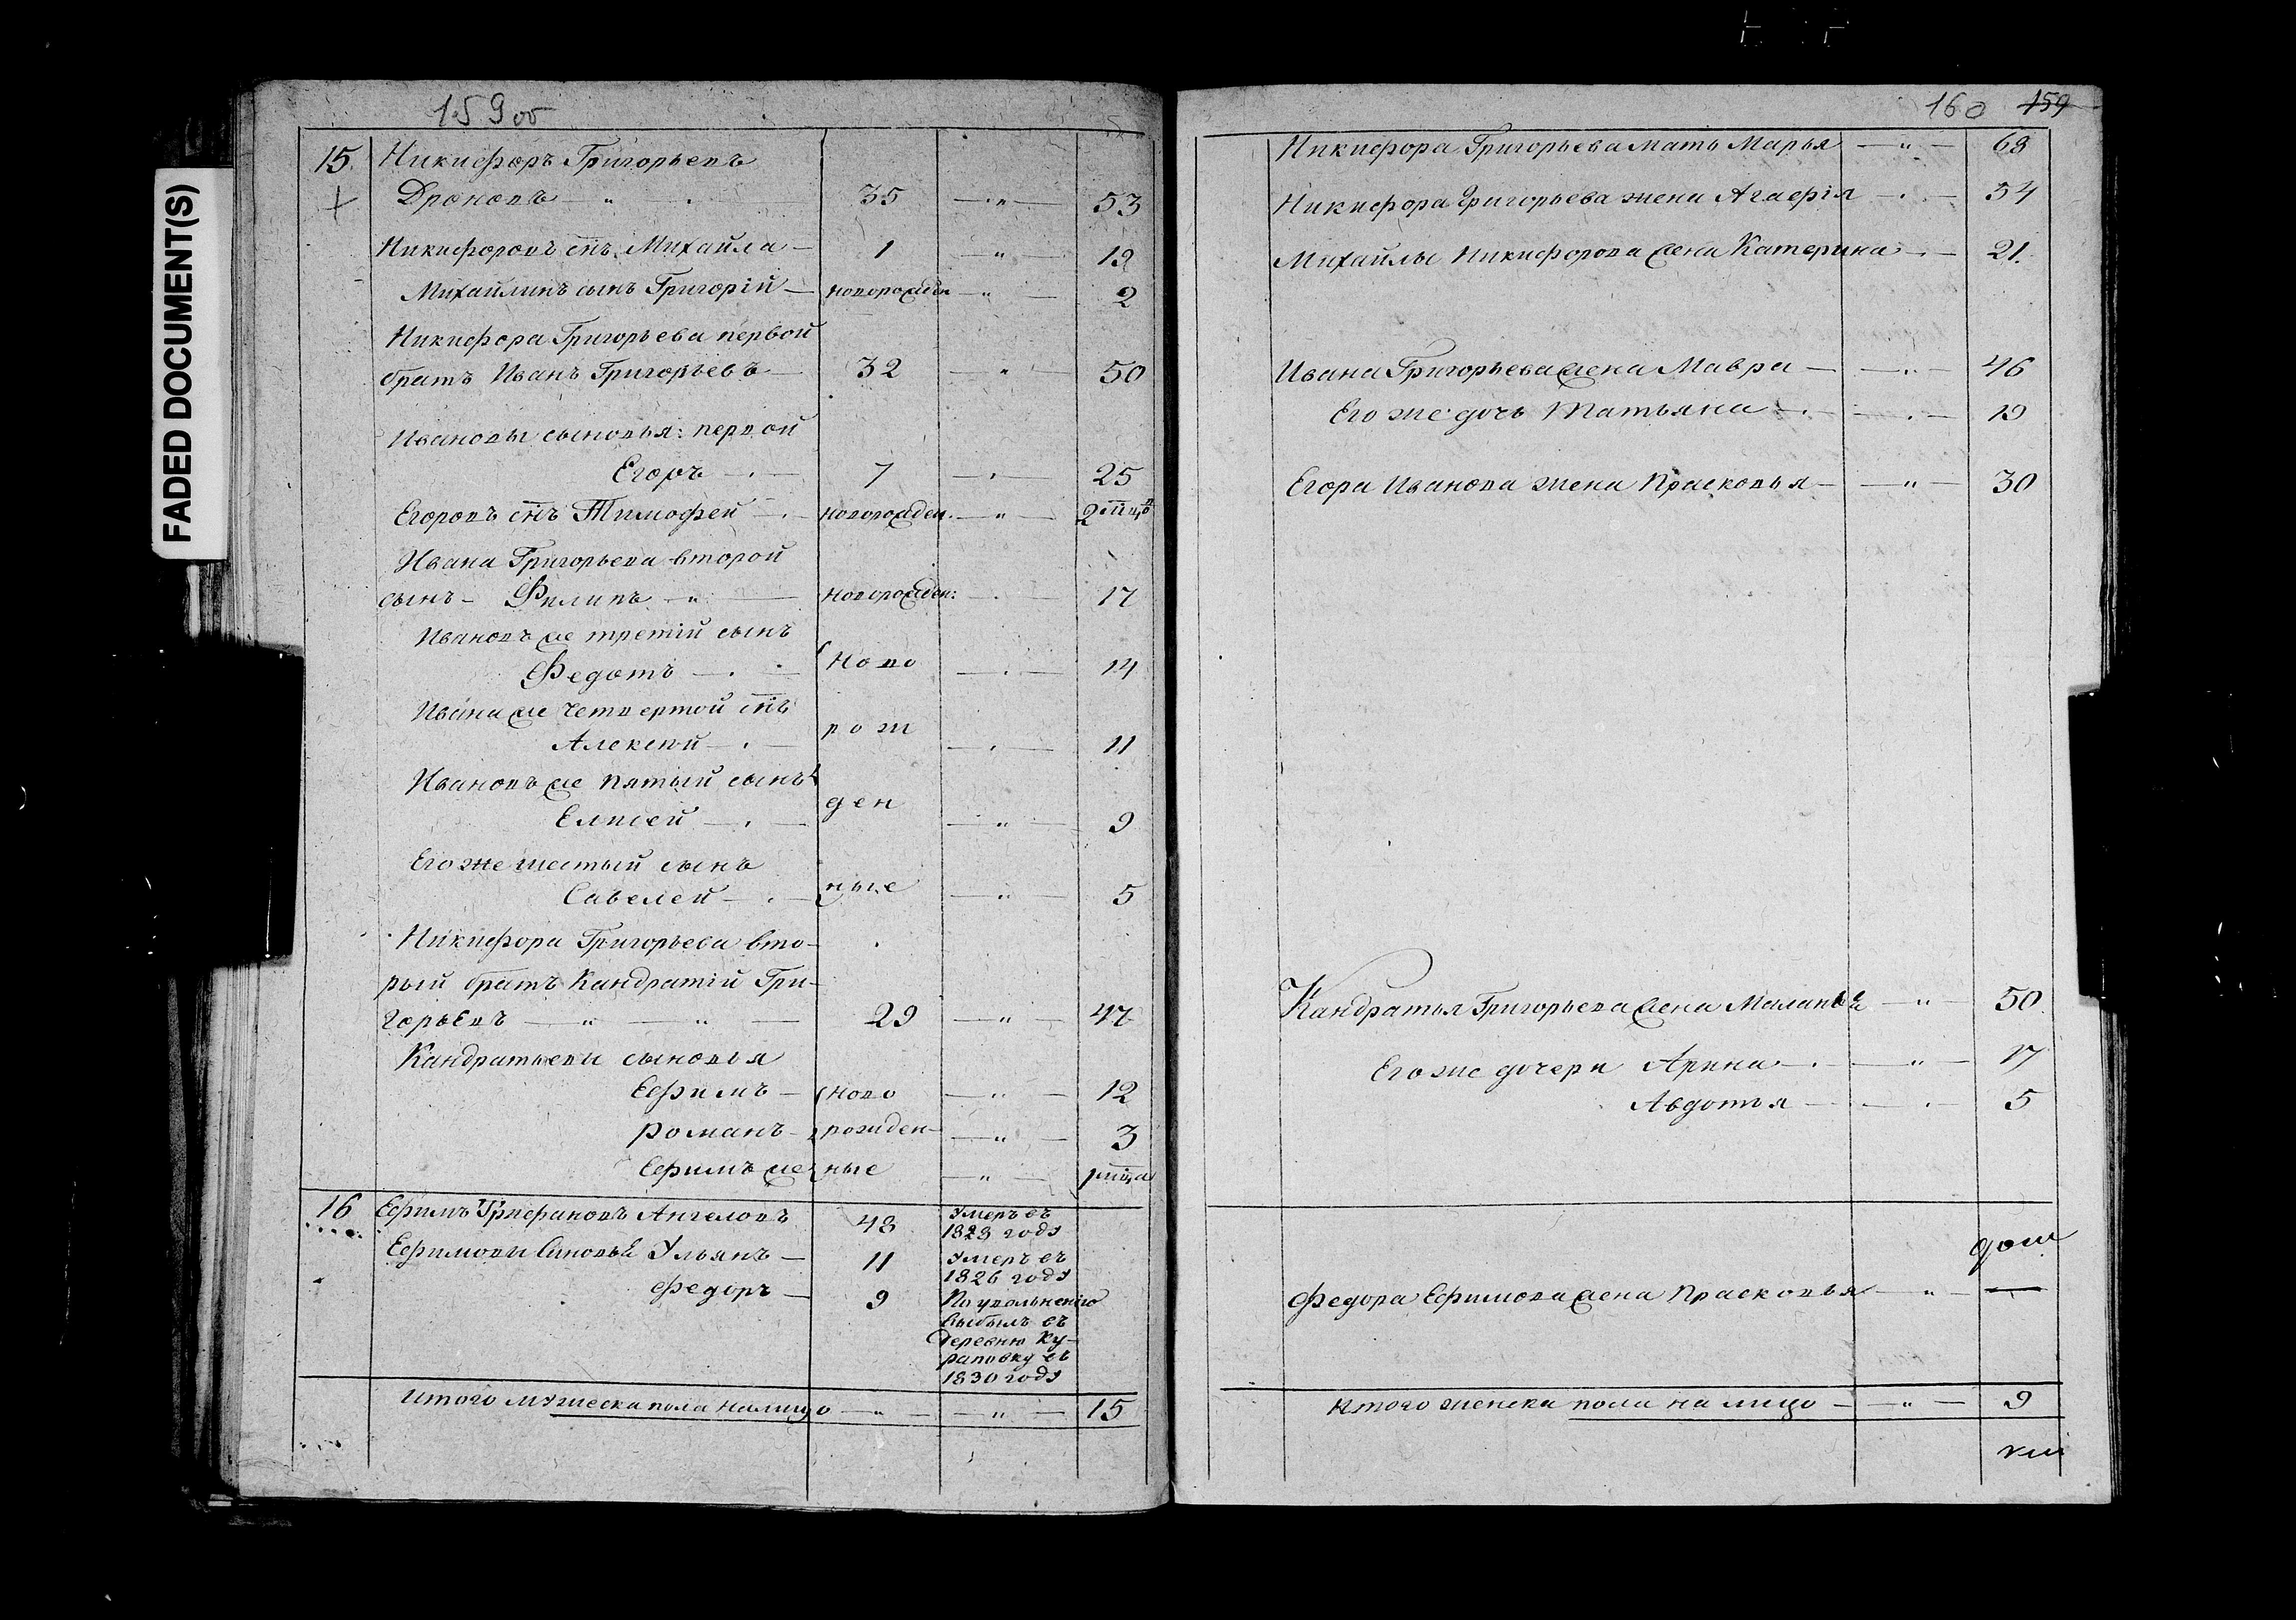 FADED DOCUMENT(S)
159об
15. Никифоръ Григорьевъ
Дроновъ — " — 35 — " — 53
Никифоровъ снъ Михайла — 1 — " — 19
Михайлинъ сынъ Григорій — новорожден — " — 2
Никифора Григорьева первой
братъ Иванъ Григорьевъ — 32 — " — 50
Ивановы сыновья: первой
Егоръ — 7 — " — 25
Егоровъ снъ Тимофей — новорожден. — " — 2 мцов
Ивана Григорьева второй
сынъ — Филипъ — " — новорожден: — 17
Ивановъ же третій сынъ
Федотъ — ново — 14
Ивана же четвертой снъ
Алексѣй — рож — 11
Ивановъ же пятый сынъ
Елисей — ден — " — 9
Его же шестый сынъ
Савелей — ные — " — 5
Никифора Григорьева вто-
рый братъ Кандратій Гри-
горьевъ — " — " — 29 — " — 47
Кандратьевы сыновья
Ефимъ — ново — " — 12
Романъ — рожден- — " — 3
Ефимъ же ные — " — 1 мца
16 Ефимъ Ангеловъ 48 Умеръ въ
1828 году
Ефимовы синовья Ульянъ — 11 Умеръ въ
1826 году
Федоръ — 9 По увольненію
выбылъ въ
деревню Ку-
раповку въ
1830 году
Итого мужеска пола налицо — " — " — 15
160 159
Никифора Григорьева мать Марья — " — 68
Никифора Григорьева жена Агафія — " — 54
Михайлы Никифорова жена Катерина — 21.
Ивана Григорьева жена Мавра — " — 46
Его же дочь Татьяна — 19
Егора Иванова жена Прасковья — " — 30
Кандратья Григорьева жена Маланья — " — 50
Его же дочери Арина — " — 17
Авдотья — 5
Федора Ефимова жена Прасковья — " —
Итого женска пола на лицо — " — 9